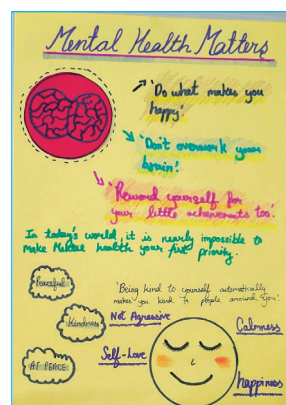 Mental Health Matters
'Do what makes you
happy'.
'Don't overwork your
brain'.
'Reward yourself for
your little achievements too'.
In today's world, it is nearly impossible to
make Mental health your first priority.
Peaceful
'Being kind to yourself automatically
makes you kind to people around you'.
Kindness
Not Agressive
Calmness
Self-Love
AT PEACE
happiness